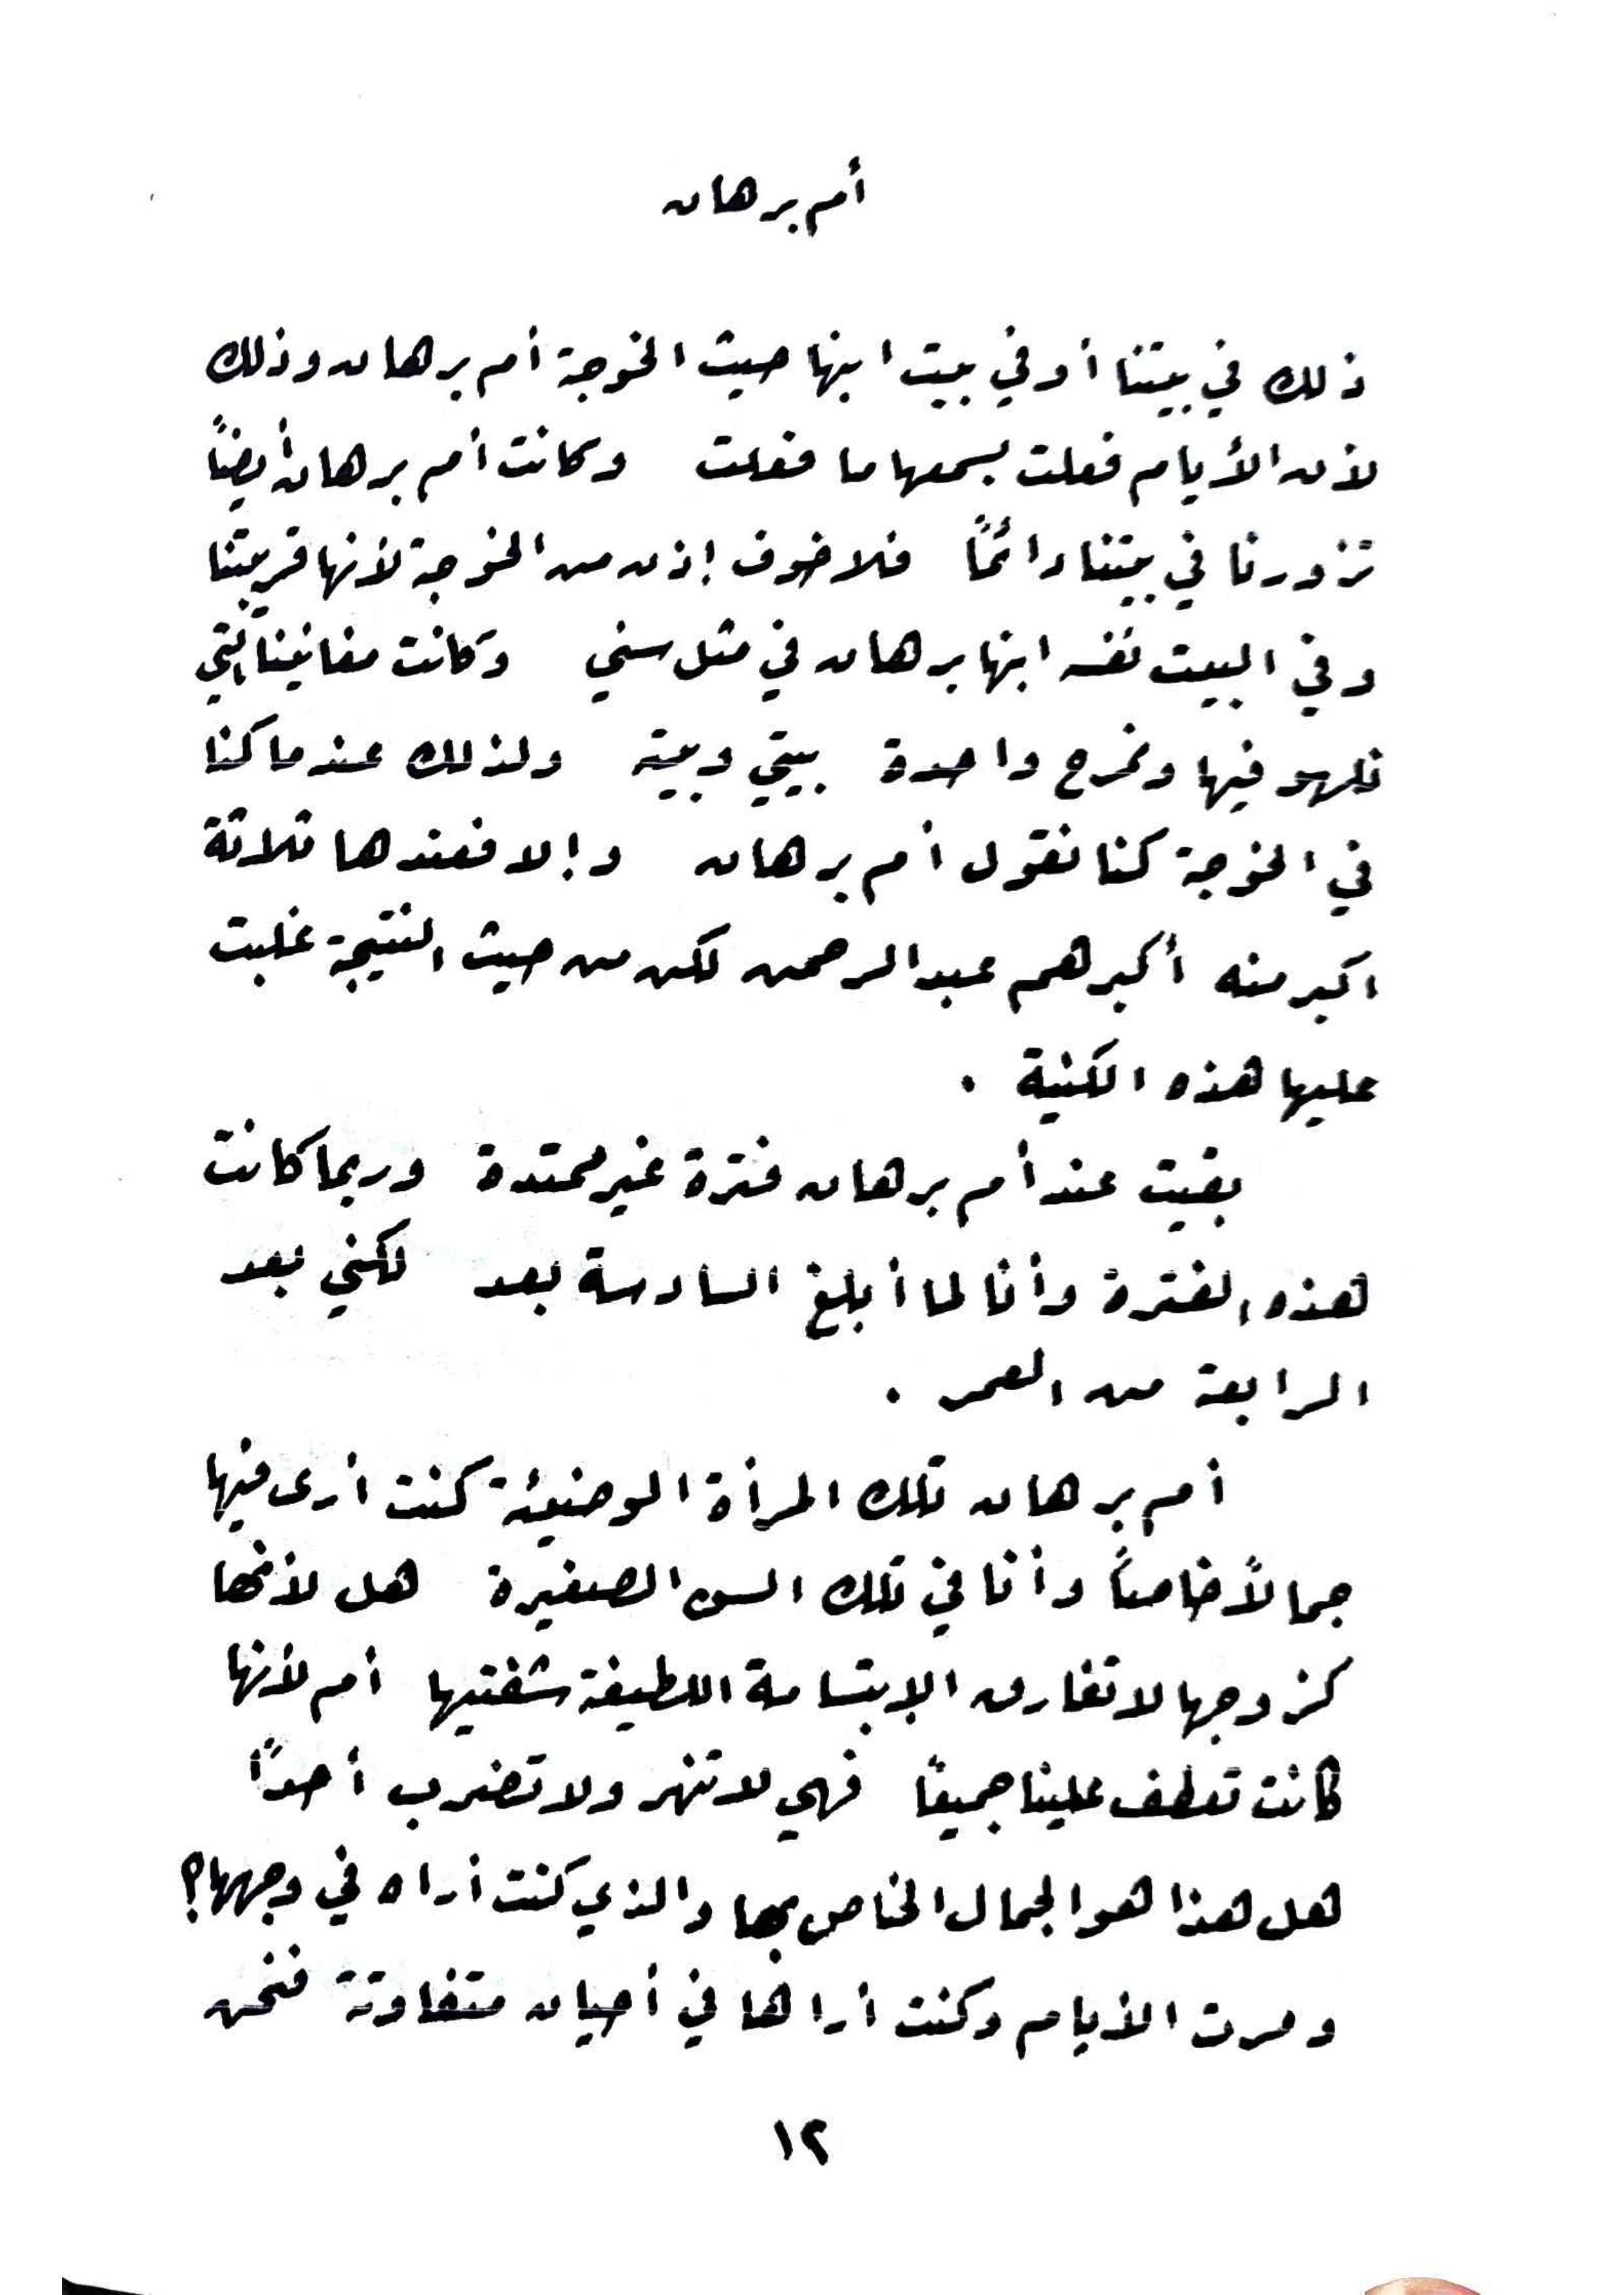 أم برهان
ذلك في بيتنا أو في بيت ابنها حيث الخوجة أم برهان وذلك
لأن الأيام فعلت بسمعها ما فعلت وكانت أم برهان أيضاً
تزورنا في بيتنا دائماً فلا خوف إذن من الخوجة لأنها قريبتنا
وفي البيت نفسه ابنها برهان في مثل سني وكانت مغانينا التي
نلهو فيها ونمرح واحدة بيتي وبيته ولذلك عندما كنا
في الخوجة كنا نقول أم برهان وإلا فعندها ثلاثة
اكبر منه أكبرهم عبدالرحمن لكن من حيث النتيجة غلبت
عليها هذه الكنية .
بقيت عند أم برهان فترة غير ممتدة وربما كانت
هذه الفترة وأنا لما أبلغ السادسة بعد لكني بعد
الرابعة من العمر .
أم برهان تلك المرأة الوضيئة كنت أرى فيها
جمالاً خاصاً وأنا في تلك السن الصغيرة هل لأنها
كزوجها لا تفارق الإبتسامة اللطيفة شفتيها أم لأنها
كانت تعطف علينا جميعاً فهي لا تنهر ولا تضرب أحداً
هل هذا هو الجمال الخاص بها والذي كنت أراه في وجهها؟
ومرت الأيام وكنت أراها في أحيان متفاوتة فنحن
١٢